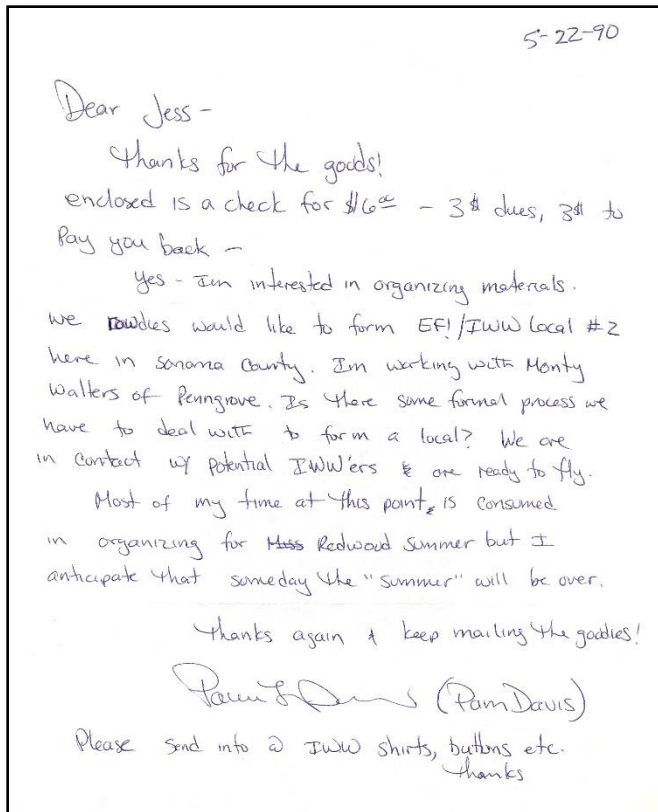 5-22-90
Dear Jess -
thanks for the goods!
enclosed is a check for $6⁰⁰ - 3$ dues, 3$ to
Pay you back -
Yes - Im interested in organizing materials.
we rowdies would like to form EF!/IWW Local #2
here in Sonoma County. Im working with Monty
Walters of Penngrove. Is there some formal process we
have to deal with to form a local? We are
in contact w/ potential IWW'ers & are ready to fly.
Most of my time at this point, is consumed
in organizing for Miss Redwood Summer but I
anticipate that someday the "summer" will be over.
thanks again & keep mailing the goodies!
(Pam Davis)
Please send info @ IWW shirts, buttons etc.
thanks